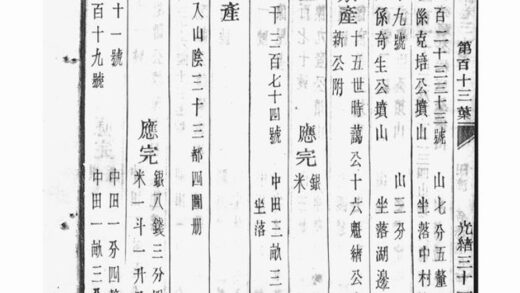 第百十三葉 光緒三十
百二十三三十三號 山七分五釐
係克培公墳山 坐落中村
九號 山三分
係奇生公墳山 坐落湖邊
產 十五世時藹公十六魁緒公
新公附
應完 銀
米
千三百七十四號 中田三畝三
坐落
產
入山陰三十三都四圖册
應完 銀八錢三分
米一斗一升
十一號 中田一分四
百十九號 中田一畝三